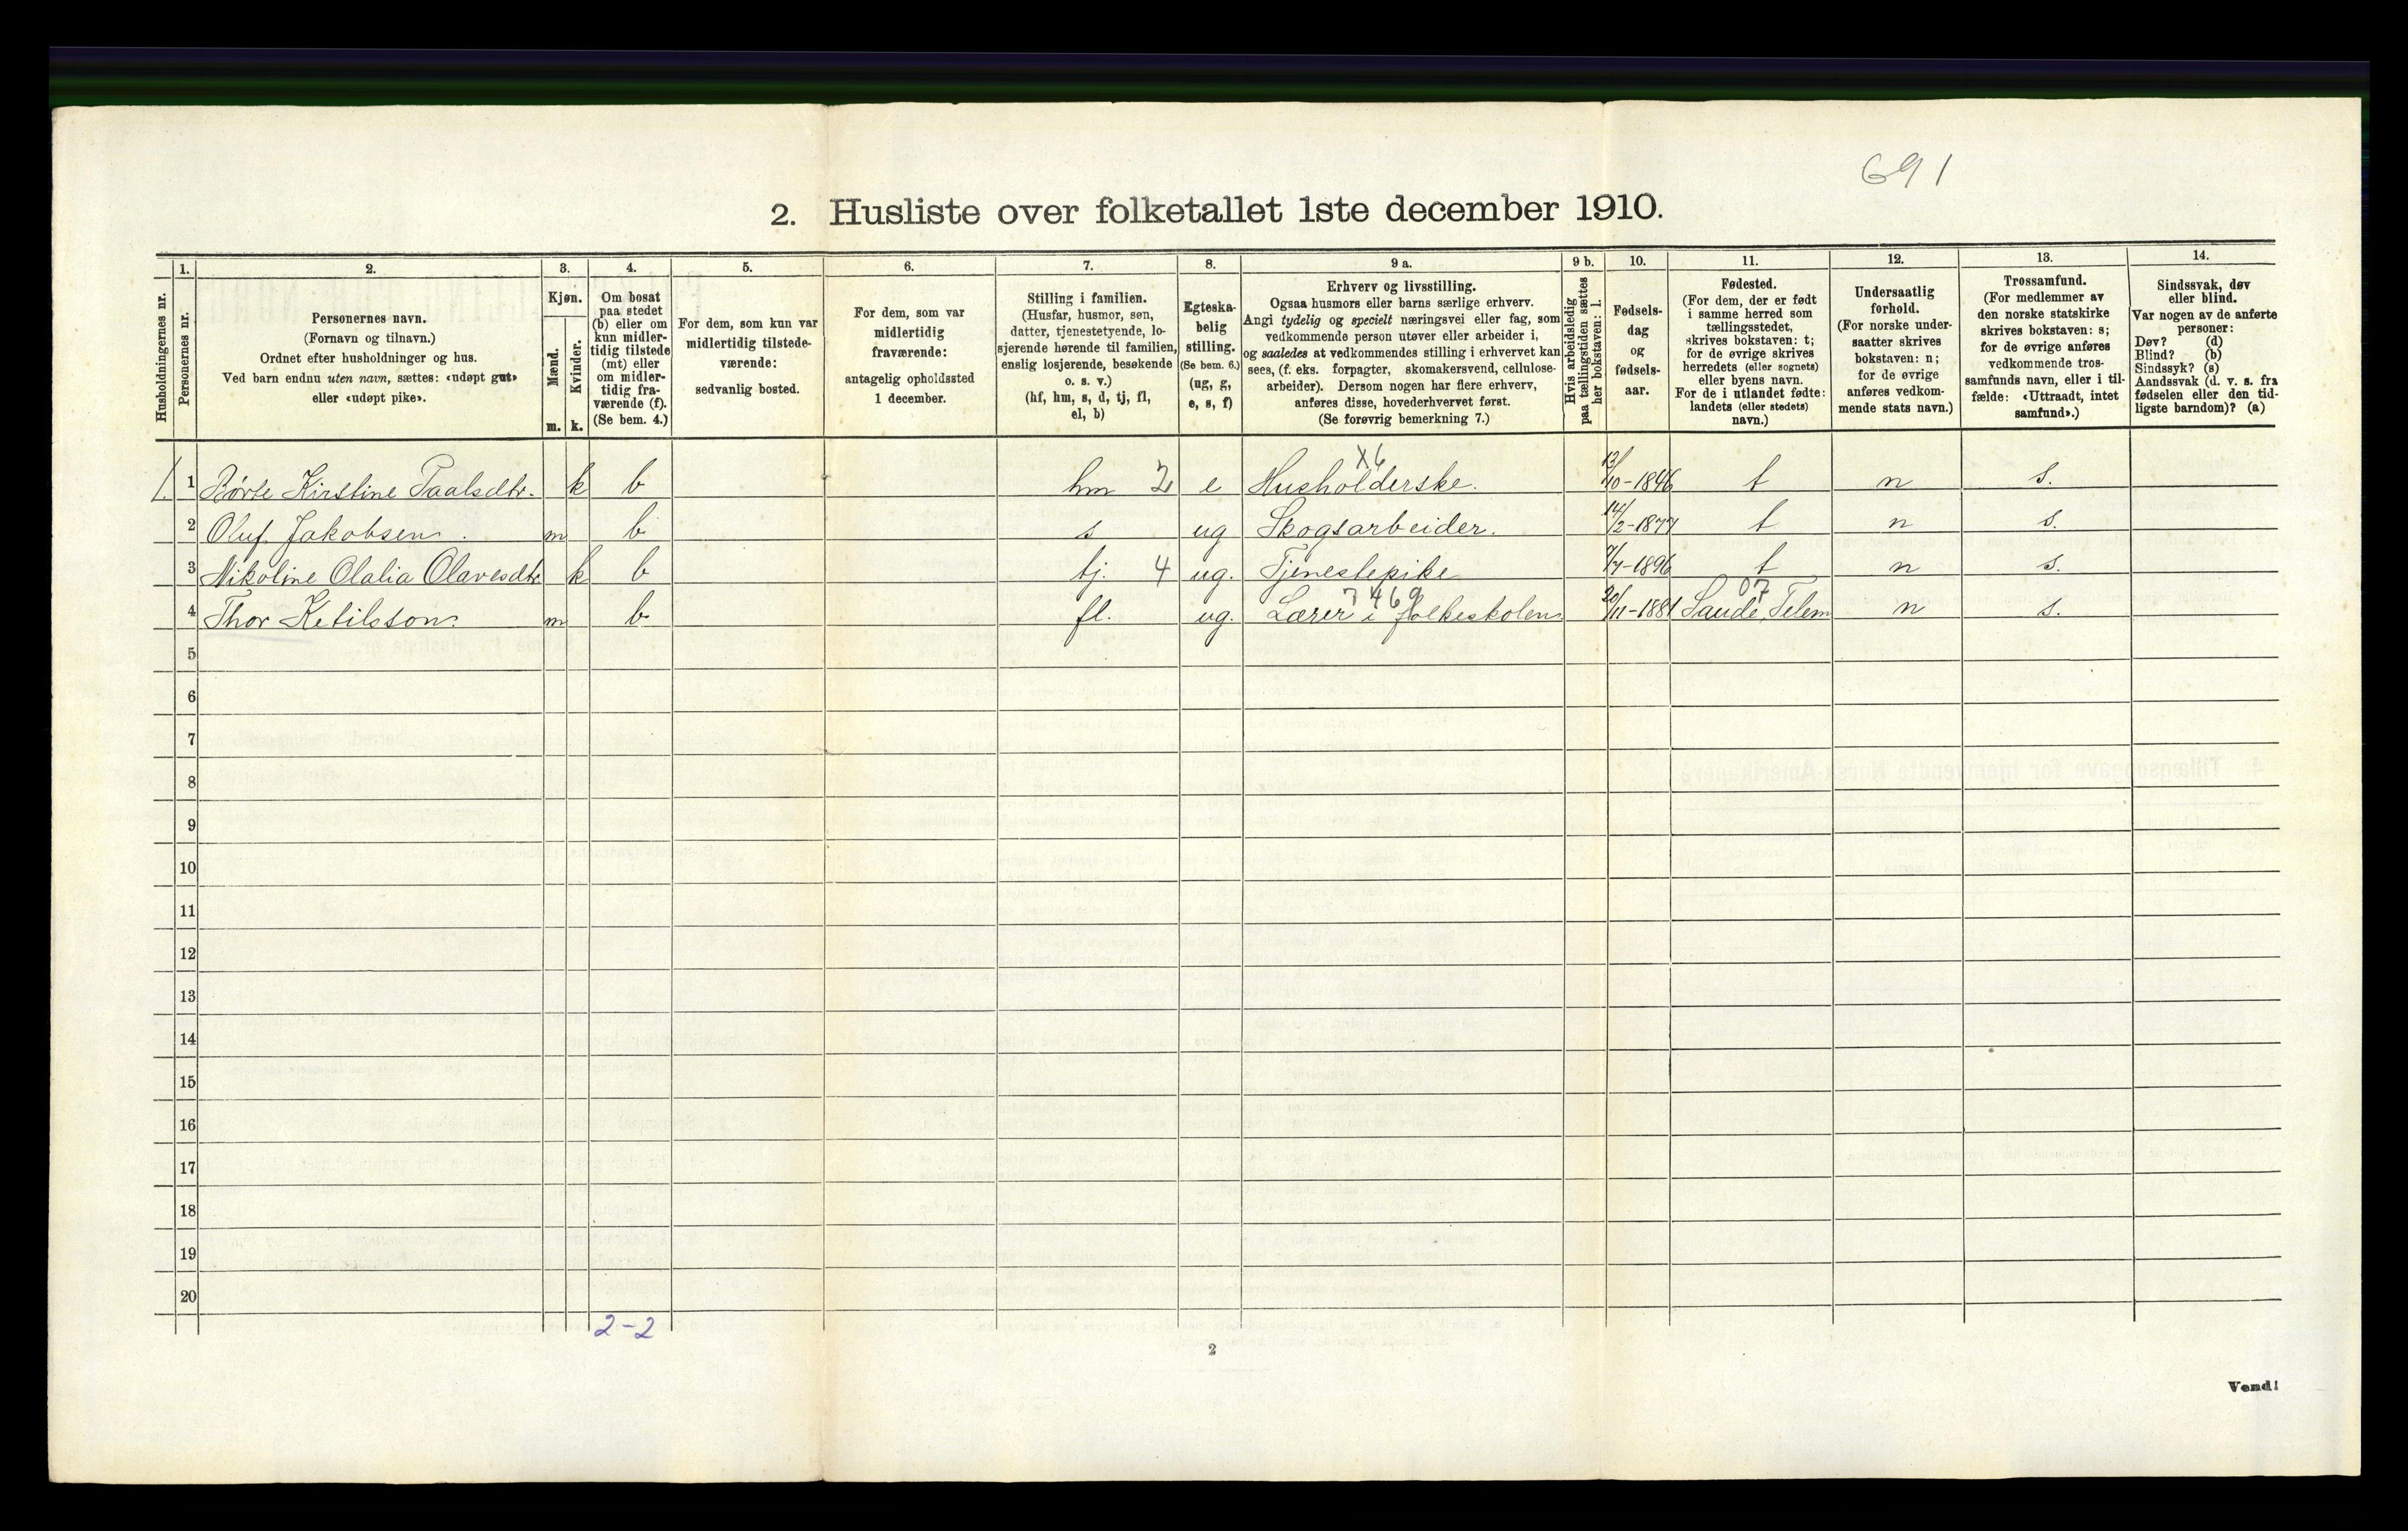 691
2. Husliste over folketallet 1ste december 1910.
Husholdningernes nr.
1. Personernes nr.
2. Personernes navn. (Fornavn og tilnavn.) Ordnet efter husholdninger og hus. Ved barn endnu uten navn, sættes: «udøpt gut» eller «udøpt pike».
3. Kjøn. Mænd. m. Kvinder. k.
4. Om bosat paa stedet (b) eller om kun midler-tidig tilstede (mt) eller om midler-tidig fra-værende (f). (Se bem. 4.)
5. For dem, som kun var midlertidig tilstede-værende: sedvanlig bosted.
6. For dem, som var midlertidig fraværende: antagelig opholdssted 1 december.
7. Stilling i familien. (Husfar, husmor, søn, datter, tjenestetyende, lo-sjerende hørende til familien, enslig losjerende, besøkende o. s. v.) (hf, hm, s, d, tj, fl, el, b)
8. Egteska-belig stilling. (Se bem. 6.) (ug, g, e, s, f)
9 a. Erhverv og livsstilling. Ogsaa husmors eller barns særlige erhverv. Angi tydelig og specielt næringsvei eller fag, som vedkommende person utøver eller arbeider i, og saaledes at vedkommendes stilling i erhvervet kan sees, (f. eks. forpagter, skomakersvend, cellulose-arbeider). Dersom nogen har flere erhverv, anføres disse, hovederhvervet først. (Se forøvrig bemerkning 7.)
9 b. Hvis arbeidsledig paa tællingstiden sættes her bokstaven: l.
10. Fødsels-dag og fødsels-aar.
11. Fødested. (For dem, der er født i samme herred som tællingsstedet, skrives bokstaven: t; for de øvrige skrives herredets (eller sognets) eller byens navn. For de i utlandet fødte: landets (eller stedets) navn.)
12. Undersaatlig forhold. (For norske under-saatter skrives bokstaven: n; for de øvrige anføres vedkom-mende stats navn.)
13. Trossamfund. (For medlemmer av den norske statskirke skrives bokstaven: s; for de øvrige anføres vedkommende tros-samfunds navn, eller i til-fælde: «Uttraadt, intet samfund».)
14. Sindssvak, døv eller blind. Var nogen av de anførte personer: Døv? (d) Blind? (b) Sindssyk? (s) Aandssvak (d. v. s. fra fødselen eller den tid-ligste barndom)? (a)
X6
1. 1 Børte Kirstine Paalsdtr. k b hm 2 e Husholderske. 13/10-1846 t n s.
2 Oluf Jakobsen. m b s ug Skogsarbeider. 14/2-1877 t n s.
3 Nikoline Olalia Olavesdtr. k b tj. 4 ug. Tjenestepike 7/7-1896 t n s.
7469 07
4 Thor Ketilsson. m b fl. ug. Lærer i folkeskolen 20/11-1881 Saude, Telem n s.
5
6
7
8
9
10
11
12
13
14
15
16
17
18
19
20
2-2
2
Vend!